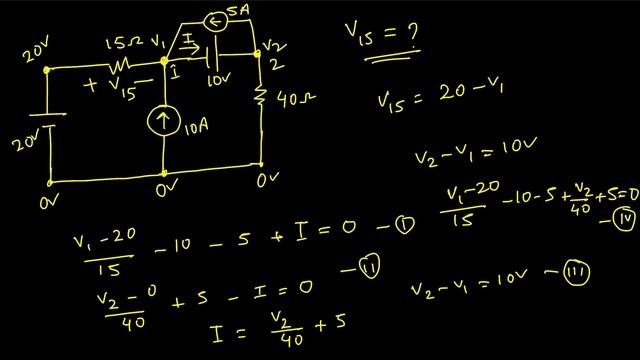 5A
20V 15Ω V₁ I V₂
1 10V 2
+ V₁₅ −
40Ω
20V 10A
0V 0V 0V
V₁₅ = ?
V₁₅ = 20 - V₁
V₂ - V₁ = 10V
(V₁ - 20)/15 - 10 - 5 + V₂/40 + 5 = 0 - (IV)
(V₁ - 20)/15 - 10 - 5 + I = 0 - (I)
(V₂ - 0)/40 + 5 - I = 0 - (II)
I = V₂/40 + 5
V₂ - V₁ = 10V - (III)